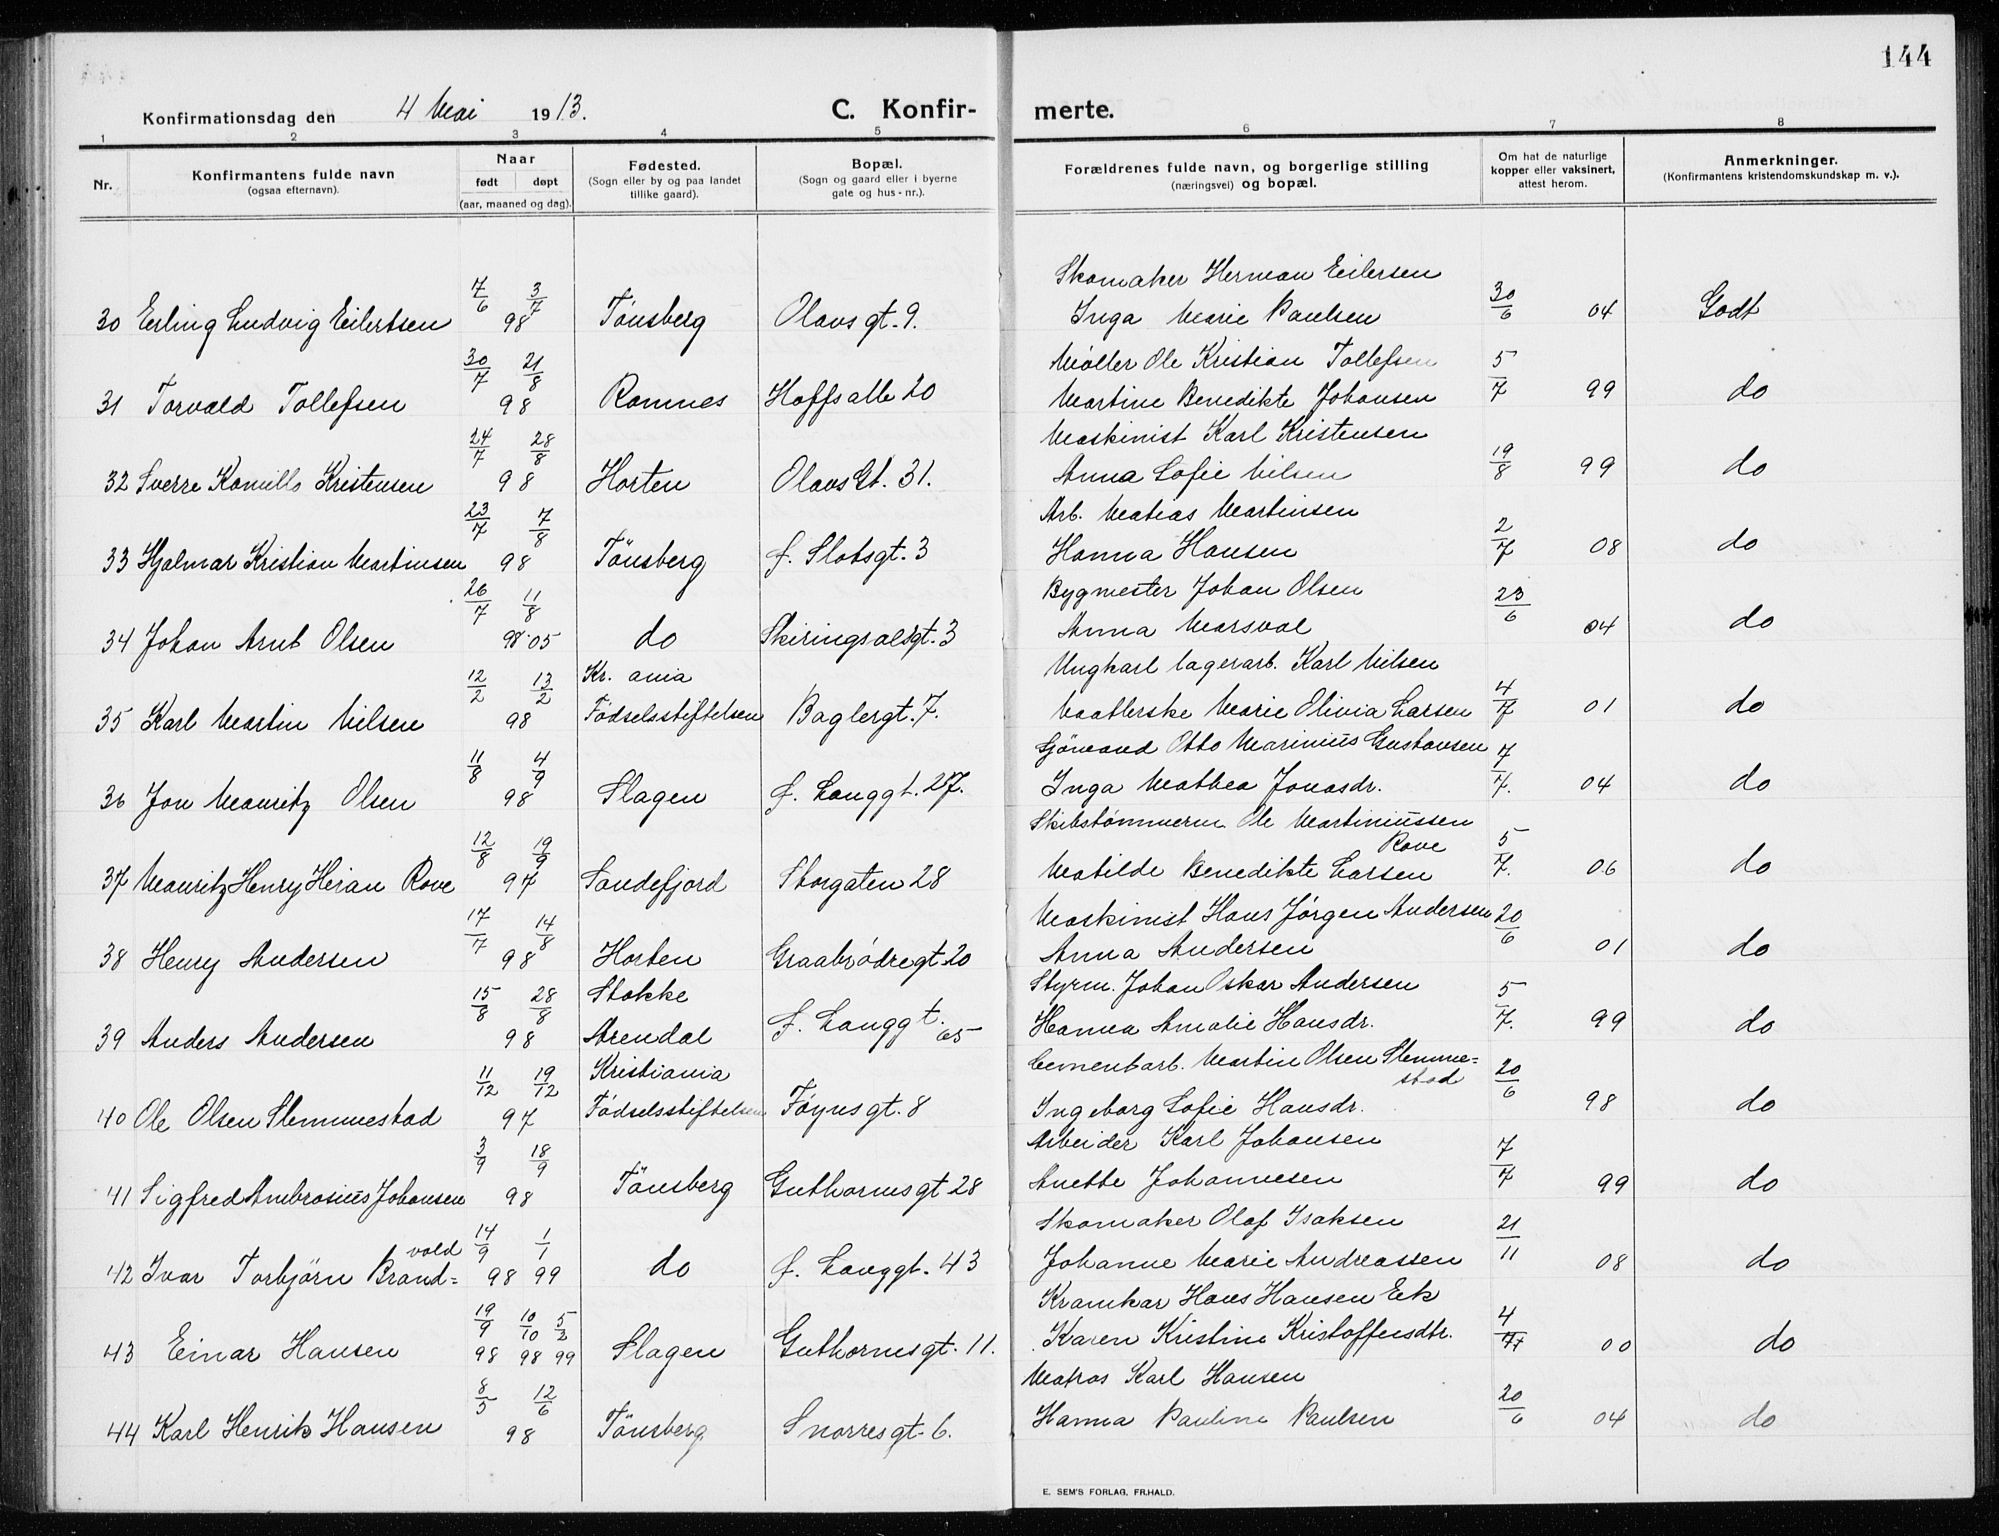 144
Konfirmationsdag den 4 Mai 1913. C. Konfir- merte.
1 2 3 4 5 6 7 8
Nr. Konfirmantens fulde navn (ogsaa efternavn). Naar født døpt (aar, maaned og dag). Fødested. (Sogn eller by og paa landet tillike gaard). Bopæl. (Sogn og gaard eller i byerne gate og hus-nr.). Forældrenes fulde navn, og borgerlige stilling (næringsvei) og bopæl. Om hat de naturlige kopper eller vaksinert, attest herom. Anmerkninger. (Konfirmantens kristendomskundskap m. v.).
7/6 3/7 Skomaker Herman Eilersen
30 Erling Ludvig Eilertsen 98 Tönsberg Olavsgt. 9. Inga Marie Paulsen 30/6 04 Godt
30/7 21/8 Møller Ole Kristian Tollefsen
31 Torvald Tollefsen 98 Ramnes Hoffsalle 20 Martine Benedikte Johansen 5/7 99 do
24/7 28/8 Maskinist Karl Kristensen
32 Sverre Kamillo Kristensen 98 Horten Olavs Gt. 31. Anna Sofie Nilsen 19/8 99 do
23/7 7/8 Arb. Matias Martinsen
33 Hjalmar Kristian Martinsen 98 Tönsberg f. Slotsgt. 3 Hanna Hansen 2/7 08 do
26/7 11/8 Bygmester Johan Olsen
34 Johan Arnt Olsen 98 05 do Skiringsalsgt. 3 Anna Marsval 23/6 04 do
12/2 13/2 Kr. ania Ungkarl lagerarb. Karl Nilsen
35 Karl Martin Nilsen 98 Födselsstiftelsen Baglergt. 7. Vaatlerske Marie Olivia Larsen 4/7 01 do
11/8 4/9 Sjömand Otto Marinius Gustavsen
36 Jon Mauritz Olsen 98 Slagen f. Langgt. 27. Inga Mathea Jonasdr. 7/7. 04 do
12/8 19/9 Skibstömmerm. Ole Martiniussen Rove
37 Mauritz Henry Heian Rove 97 Sandefjord Storgaten 28 Matilde Benedikte Larsen 5/7. 06 do
17/7 14/8 Maskinist Hans Jørgen Andersen
38 Henry Andersen 98 Horten Graabrødregt. 20 Anna Andersen 20/6 01 do
15/8 28/8 Stokke Styrm. Johan Oskar Andersen
39 Anders Andersen 98 Arendal f. Langgt. 65 Hanna Amalie Hansdr. 5/7. 99 do
11/12 19/12 Kristiania Cementarb. Martin Olsen Slemme= stad
40 Ole Olsen Slemmestad 97 Födselsstiftelsen Føynsgt. 8 Ingeborg Sofie Hansdr. 20/6 98 do
3/9 18/9 Arbeider Karl Johansen
41 Sigfred Ambrosius Johansen 98 Tönsberg Guthormsgt 28 Anette Johannesen 7/7 99 do
14/9 1/1 Skomaker Olaf Isaksen
42 Ivar Torbjørn Brand= vold 98 99 do f. Langgt. 43 Johanne Marie Andreassen 21/11 08 do
19/9 10/10 5/3 Kramkar Hans Hansen Eek
43 Einar Hansen 98 98 99 Slagen Guthormsgt. 11. Karen Kristine Kristoffersdtr. 4/7 00 do
8/5 12/6 Matros Karl Hansen
44 Karl Henrik Hansen 98 Tönsberg Snorresgt. 6. Hanna Pauline Paulsen 20/6 04 do
E. SEM'S FORLAG, FR.HALD.